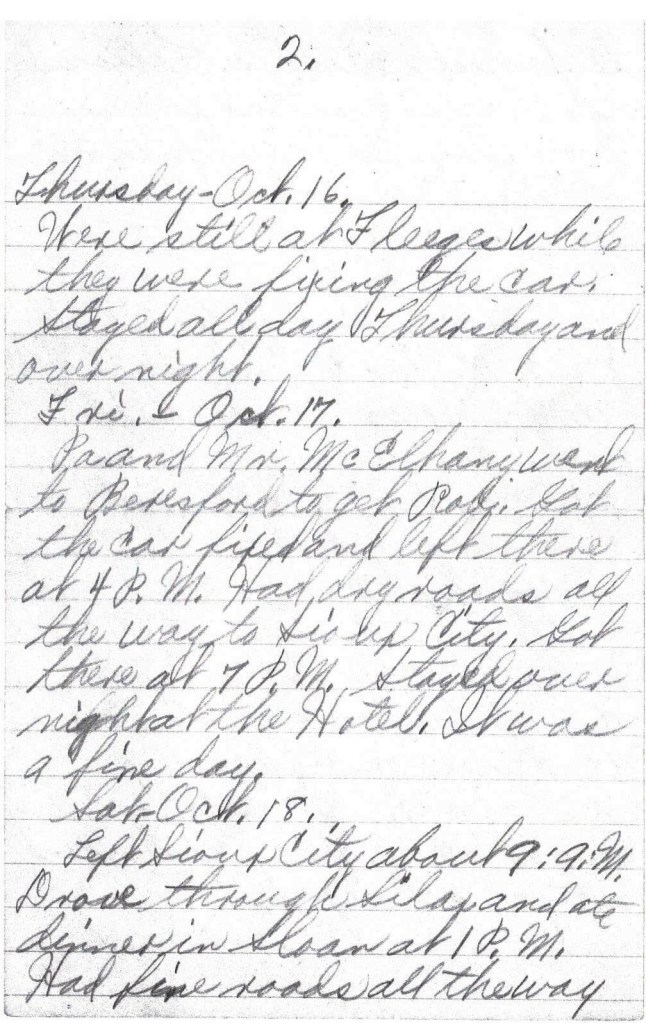 2.
Thursday - Oct. 16.
Were still at Fleeges while
they were fixing the car.
Stayed all day Thursday and
over night.
Fri. - Oct. 17.
Pa and Mr. McElhany went
to Beresford to get Rod. Got
the car fixed and left there
at 4 P.M. Had dry roads all
the way to Sioux City. Got
there at 7 P.M. Stayed over
night at the Hotel. It was
a fine day.
Sat- Oct. 18.
Left Sioux City about 9:
Drove through and ate
dinner in Sloan at 1 P.M.
Had fine roads all the way